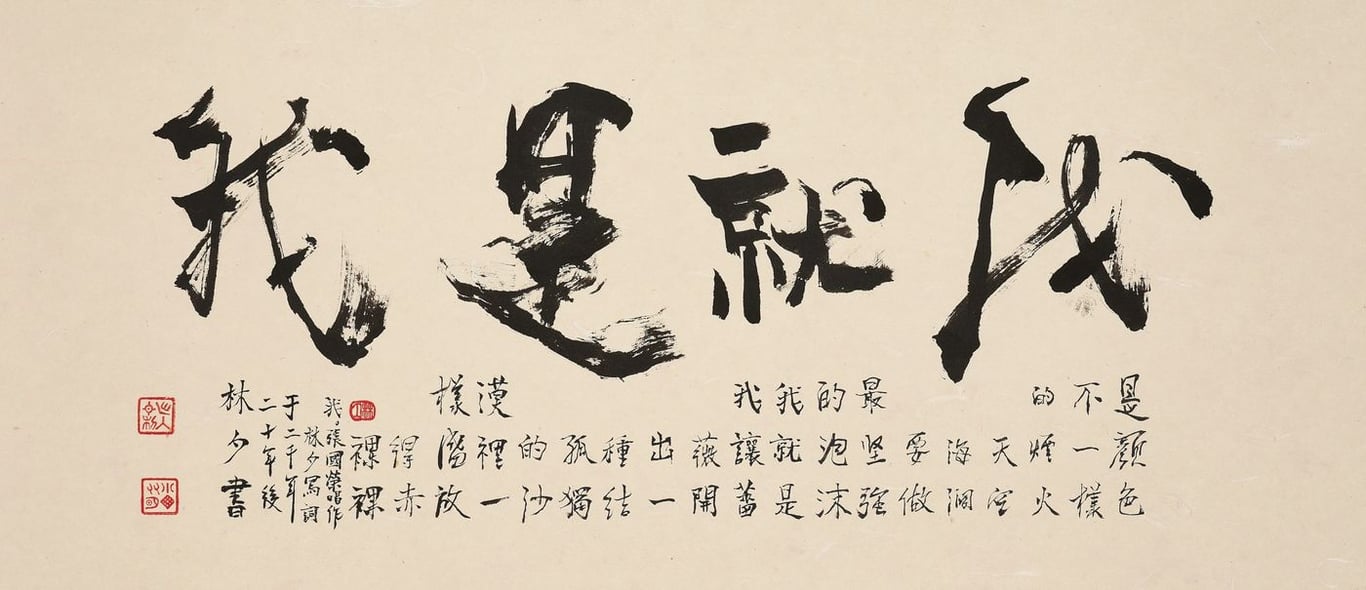 我就是我
是顏色
不一樣
的煙火
天空
海闊
要做
最坚強
的泡沫
我就是
我讓蕃
薇開
出一
種結
孤獨
的沙
漠裡一
樣盛放
得赤
裸裸
我。張國榮唱作
林夕寫詞
于二千年
二十年後
林夕書